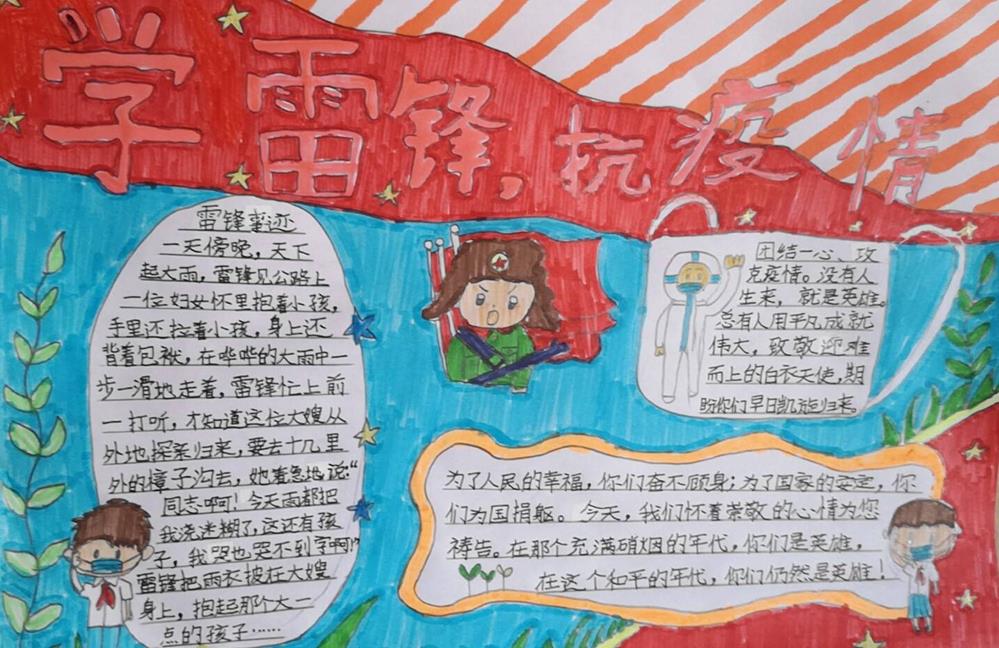 学雷锋,抗疫情
雷锋事迹
一天傍晚,天下
起大雨,雷锋见公路上
一位妇女怀里抱着小孩,
手里还拉着小孩,身上还
背着包袱,在哗哗的大雨中一
步一滑地走着,雷锋忙上前
一打听,才知道这位大嫂从
外地探亲归来,要去十几里
外的樟子沟去,她着急地说:“
同志啊!今天雨都把
我浇迷糊了,这还有孩
子,我哭也哭不到家啊!”
雷锋把雨衣披在大嫂
身上,抱起那个大一
点的孩子……
团结一心、攻
克疫情。没有人
生来,就是英雄。
总有人用平凡成就
伟大,致敬迎难
而上的白衣天使,期
盼你们早日凯旋归来。
为了人民的幸福,你们奋不顾身;为了国家的安定,你
们为国捐躯。今天,我们怀着崇敬的心情为您
祷告。在那个充满硝烟的年代,你们是英雄,
在这个和平的年代,你们仍然是英雄!